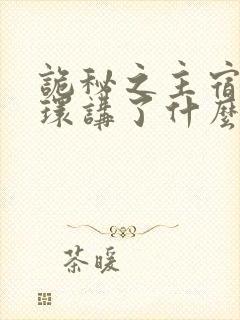 詭秘之主宿
環講了什麼
茶暖